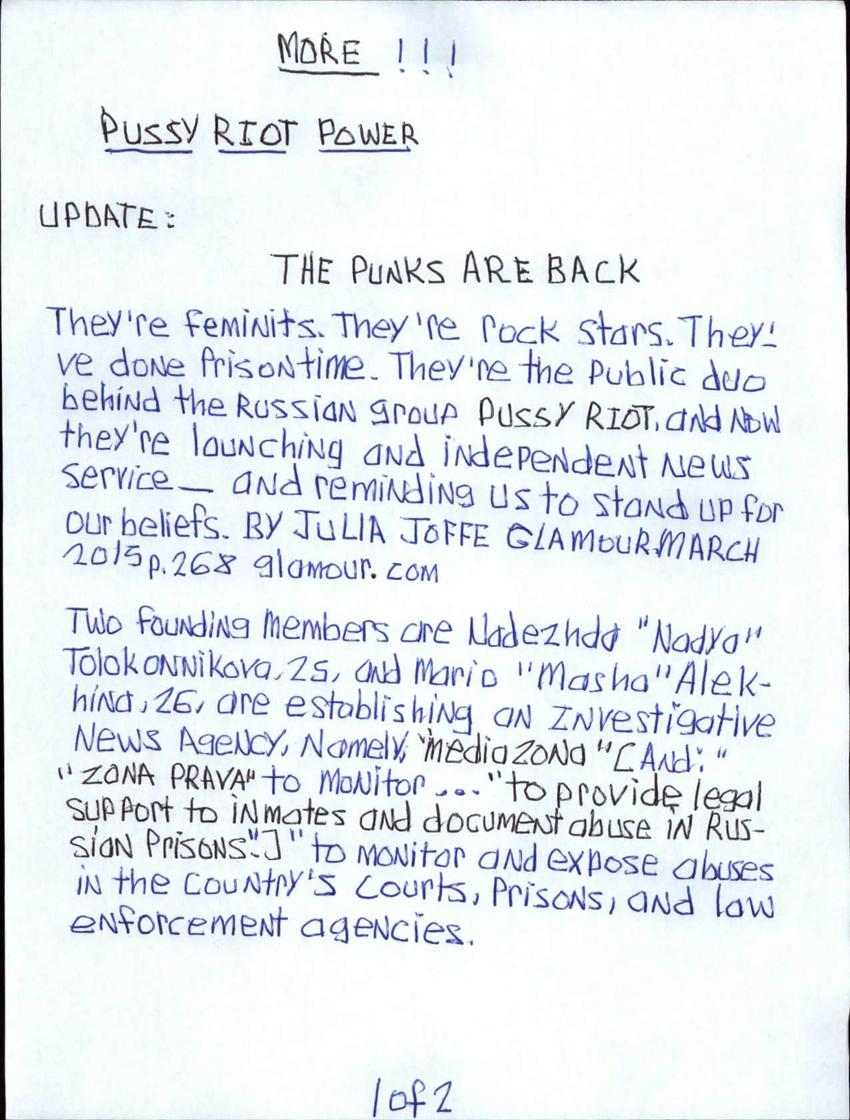 MORE !!!
PUSSY RIOT POWER
UPDATE:
THE PUNKS ARE BACK
They're feminits. They're rock stars. They'
ve done prisontime. They're the public duo
behind the Russian group PUSSY RIOT, and now
they're launching and independent news
service — and reminding us to stand up for
our beliefs. BY JULIA JOFFE GLAMOUR.MARCH
2015 p.268 glamour.com
Two founding members are Nadezhda "Nadya"
Tolokonnikova, 25, and Maria "Masha" Alek-
hina, 26, are establishing an Investigative
News Agency, Namely, "mediazona" [And: "
"ZONA PRAVA" to monitor ... "to provide legal
support to inmates and document abuse in Rus-
sian Prisons".] "to monitor and expose abuses
in the country's courts, prisons, and law
enforcement agencies.
1 of 2